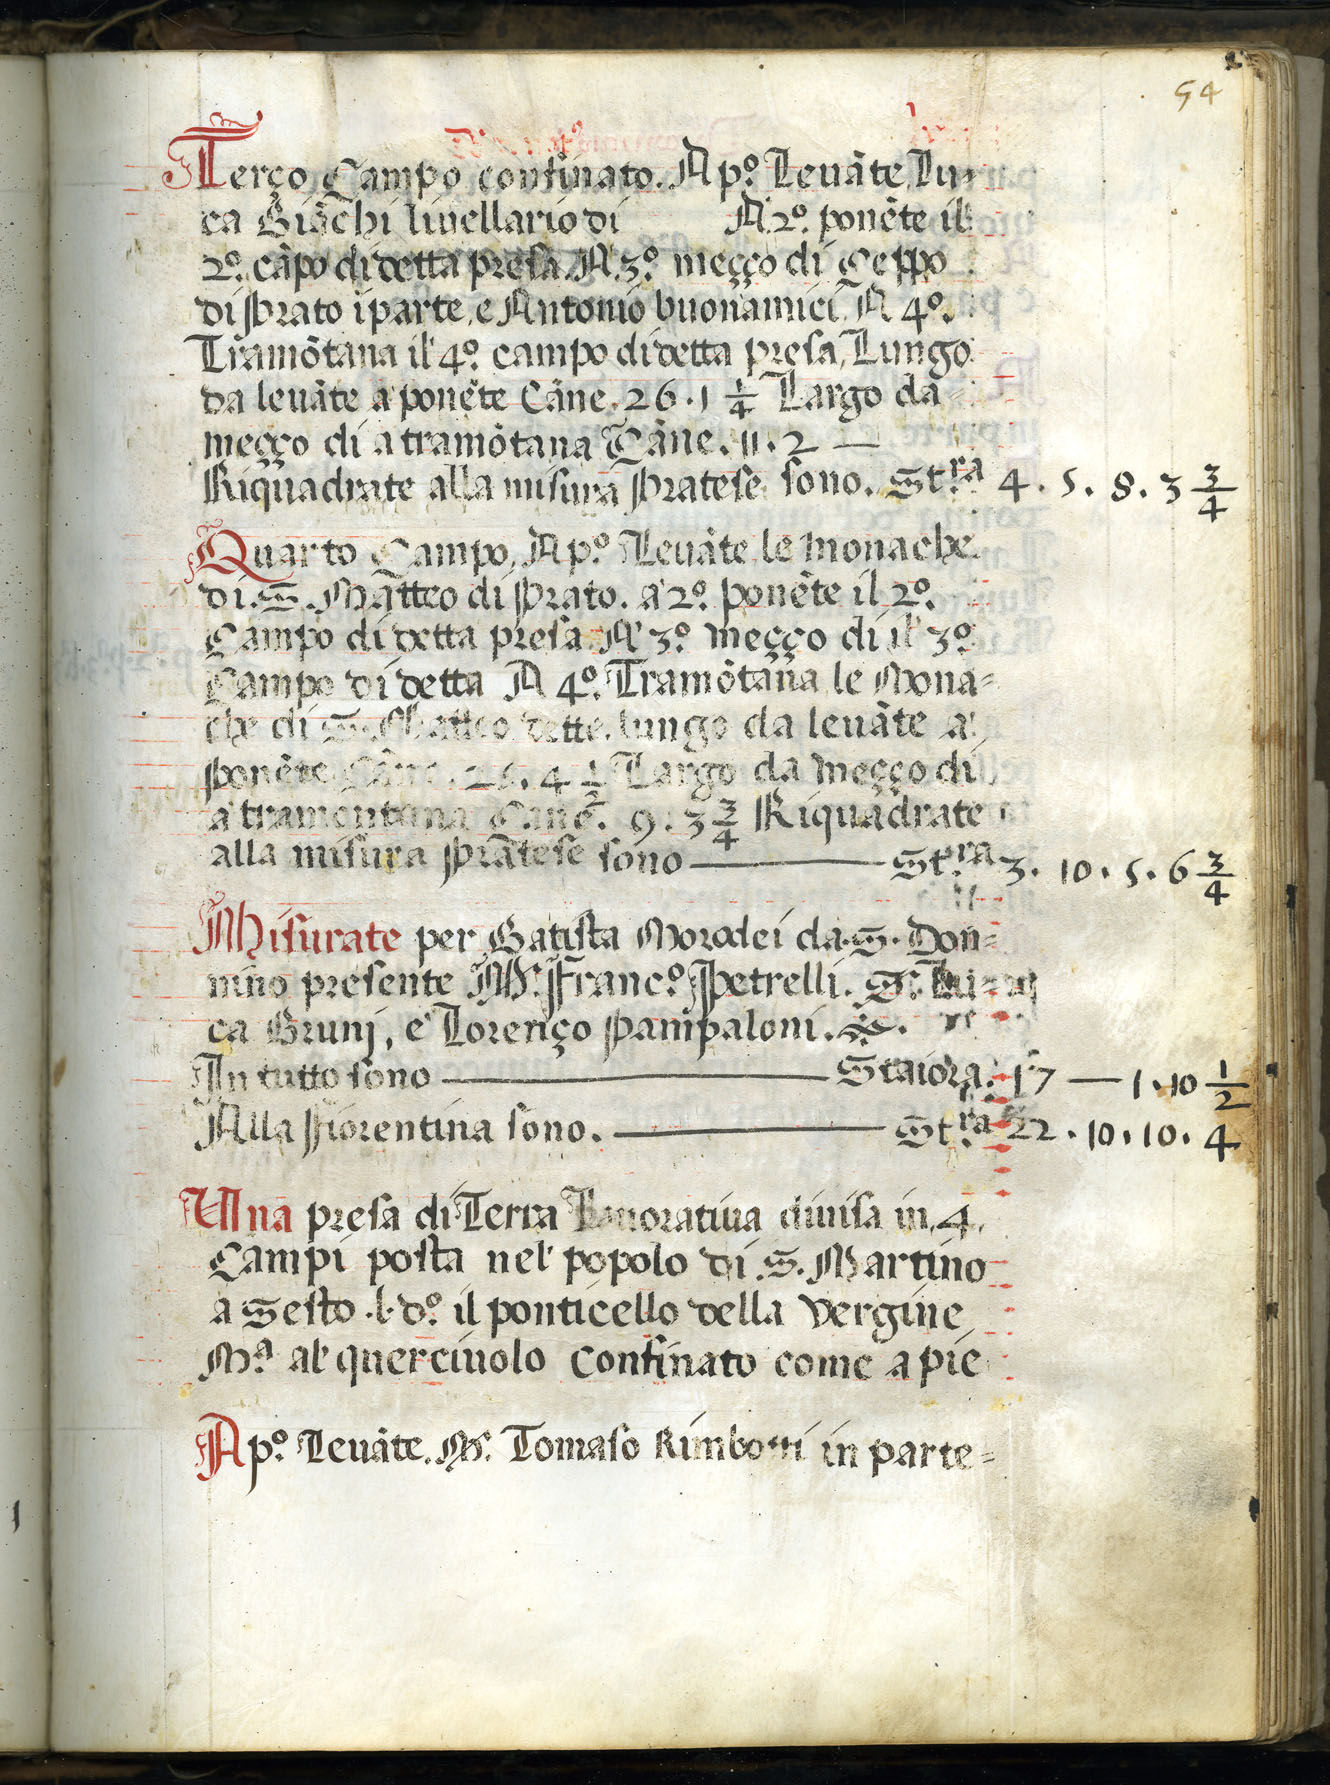 54
Terço Campo confinato. A pº. Leuãte, Lu-
ca Giãchi liuellario di A. 2º. ponẽte il
2º. cãpo di detta presa. A. 3º. meçço di Ceppo
di Prato ĩ parte, e Antonio buonamici, A 4º.
Tramõtana il 4º. campo di detta presa, Lungo
da leuãte a ponẽte Cãne. 26. 1 1/4 Largo da
meçço di a tramõtana Cãne. 11. 2 —
Riquadrate alla misura Pratese sono. St.ra 4. 5. 8. 3 3/4
Quarto Campo, A pº. Leuãte le monache
di. S. Matteo di Prato. a 2º. ponẽte il 2º.
Campo di detta presa. A 3º. meçço di il 3º.
Campo di detta A 4º. Tramõtana le Mona=
che di S. Matteo dette. lungo da leuãte a
ponẽte Cãne. 26. 4 1/2 Largo da meçço di
a tramontana Cane. 9. 3 3/4 Riquadrate
alla misura Pratese sono — St.ra 3. 10. 5. 6 3/4
Misurate per Batista Moradei da. S. Don=
nino presente Mr. Francº. Petrelli. Sr. Lu=
ca Bruni, e Lorenço Panpaloni.
In tutto sono — Staiora. 17 — 1. 10 1/2
Alla Fiorentina sono. — St.ra 22. 10. 10. 4
Una presa di Terra Lauoratiua diuisa in. 4.
Campi posta nel popolo di. S. Martino
a Sesto. l. dº. il ponticello della Vergine
Mª. al querciuolo confinato come a pie
A pº. Leuãte. Mr. Tomaso Rimbotti in parte=